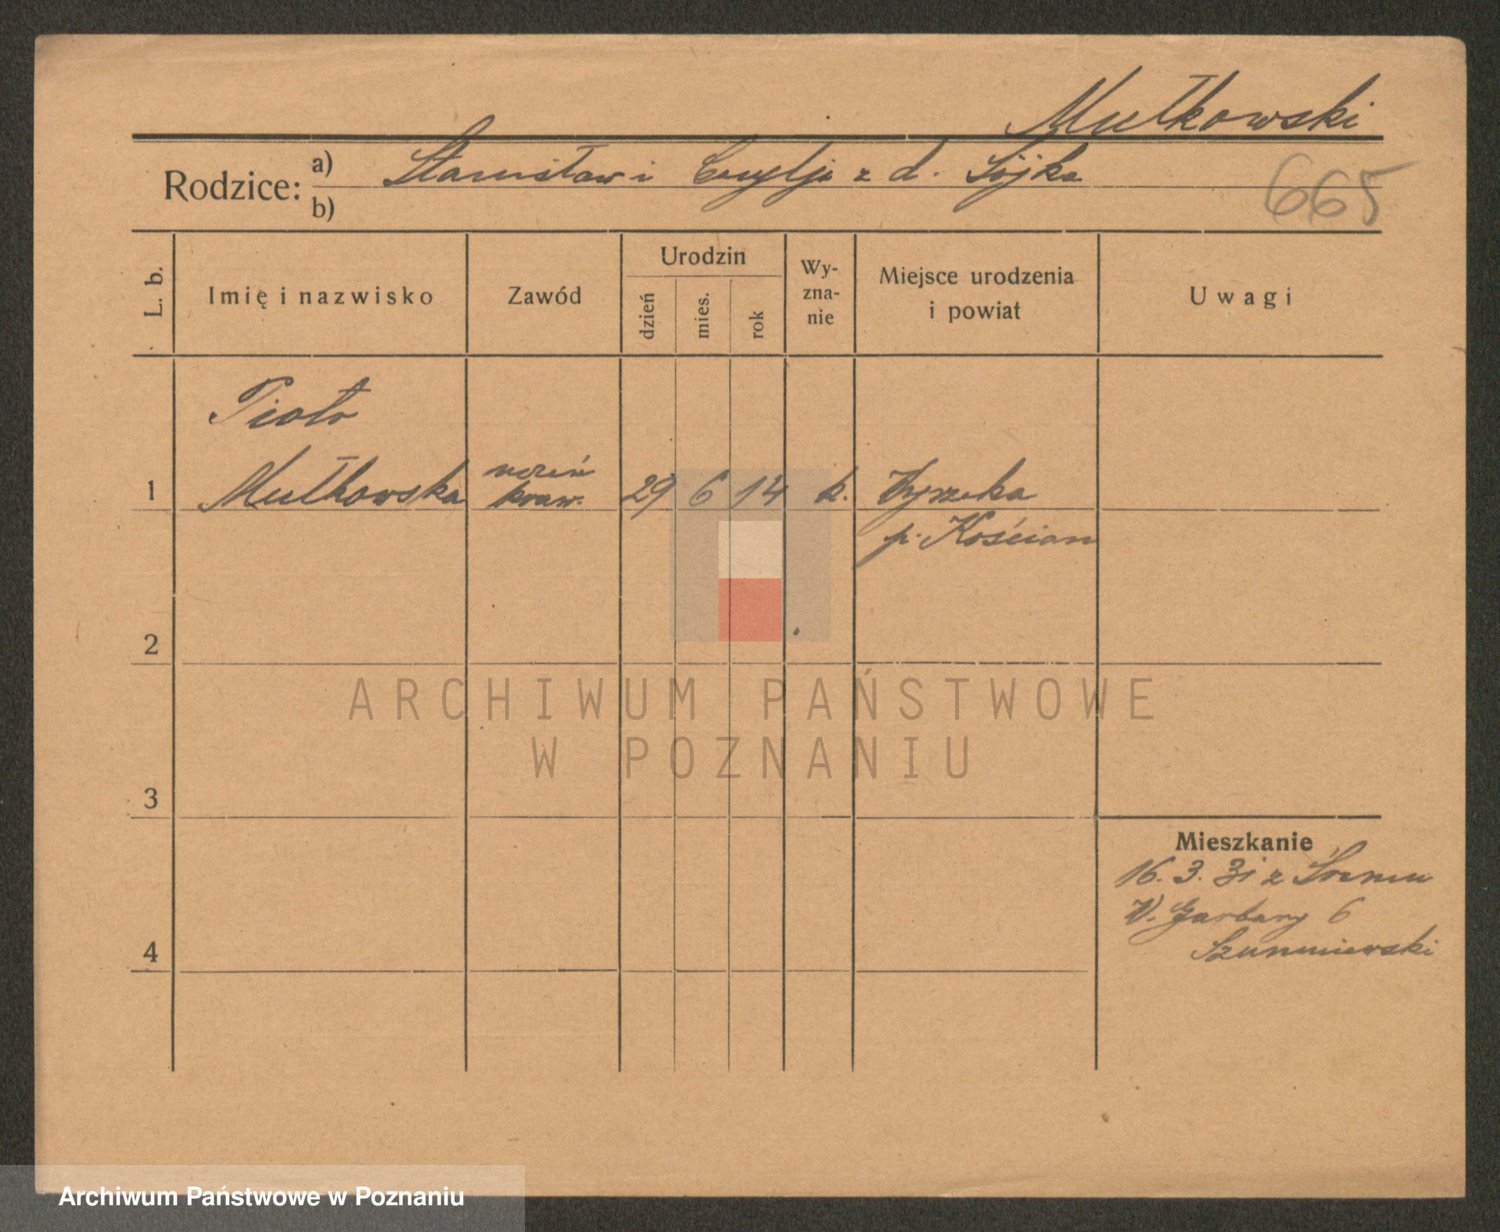 Mułkowski
Rodzice: a) Stanisław i Cecylja z d. Sójka
b)
665
L. b.
Imię i nazwisko
Zawód
Urodzin
dzień
mies.
rok
Wy-
zna-
nie
Miejsce urodzenia
i powiat
Uwagi
Piotr
1 Mułkowska uczeń kraw. 29 6 14 k.
p. Kościan
2
ARCHIWUM PAŃSTWOWE
W POZNANIU
3
Mieszkanie
16. 3. 31 z Śremu
W. Garbary 6
4
Archiwum Państwowe w Poznaniu